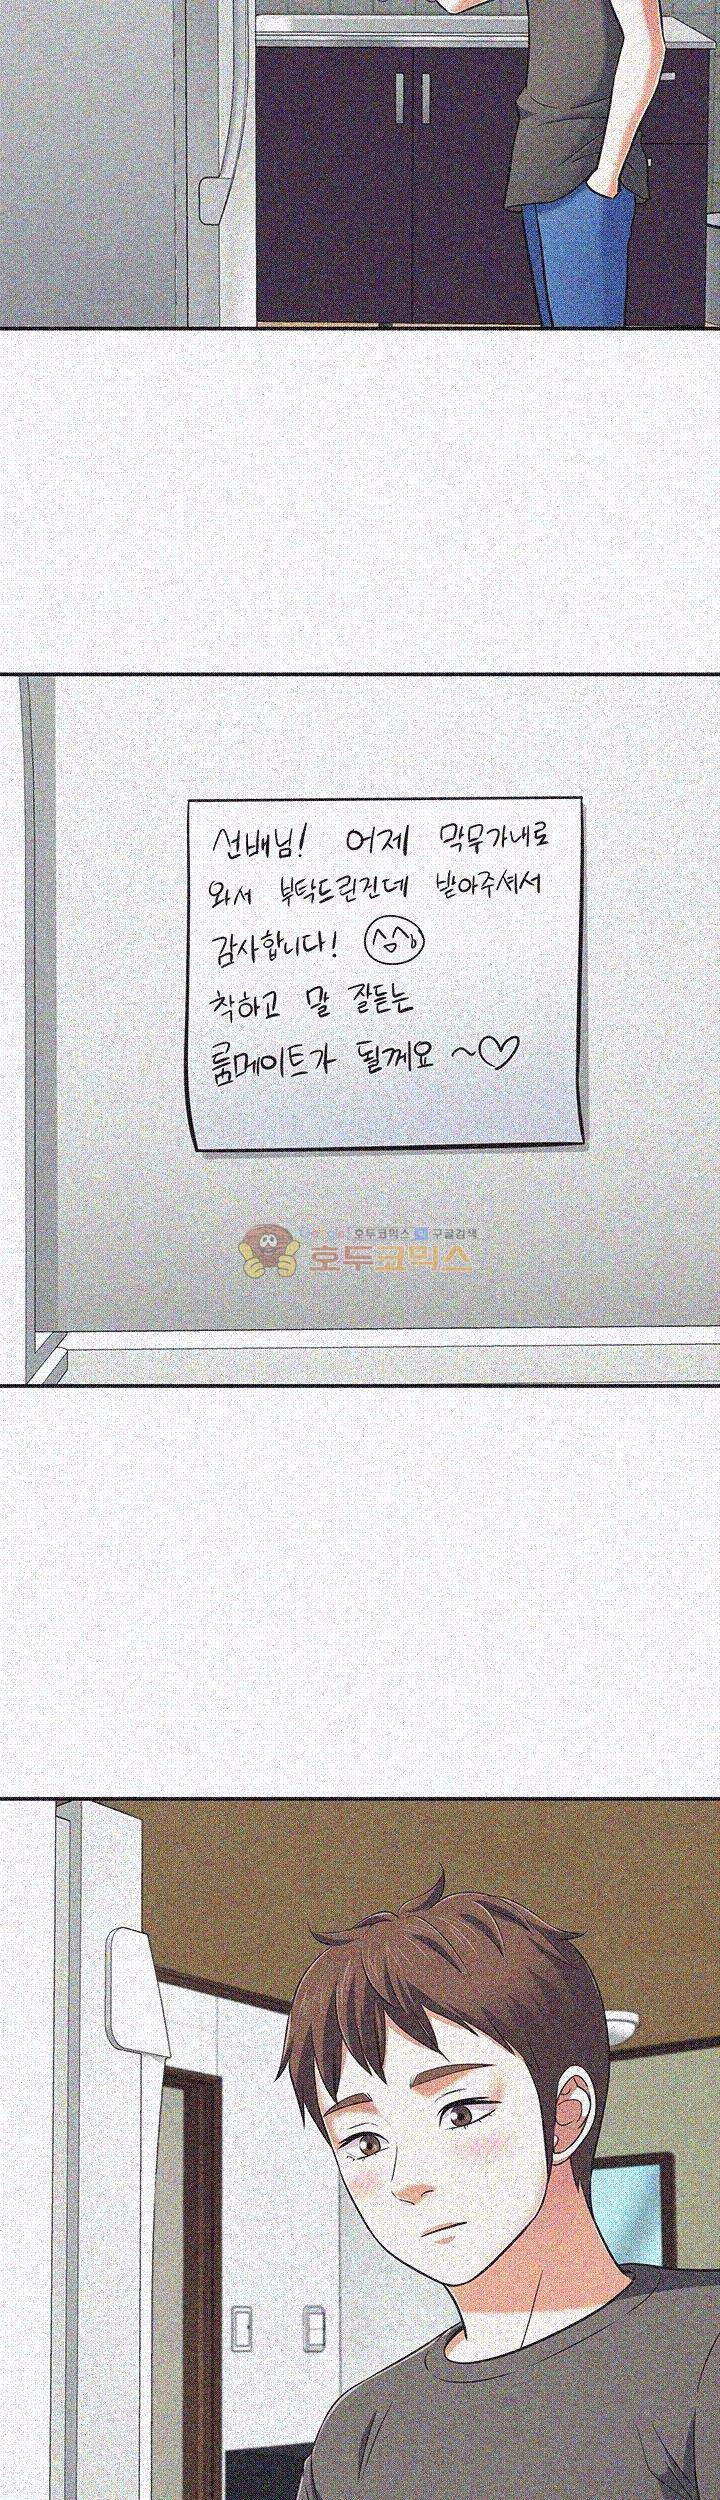 선배님! 어제 막무가내로
와서 부탁드린건데 받아주셔서
감사합니다!
착하고 말 잘듣는
룸메이트가 될께요 ~♡
호두코믹스 구글검색
호두코믹스